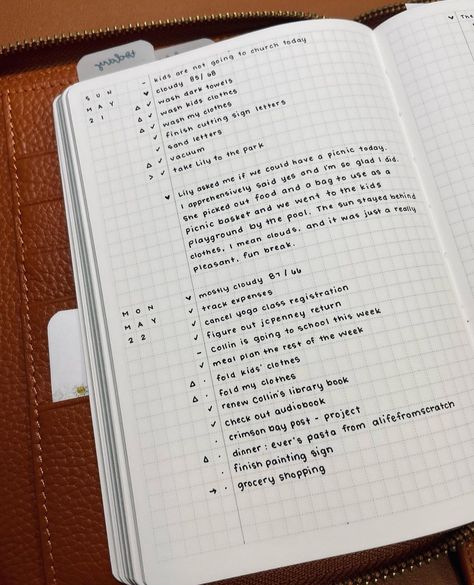 today
SUN
MAY
21
- kids are not going to church today
♥ cloudy 85/68
△ ✓ wash dark towels
✓ wash kids clothes
△ ✓ wash my clothes
△ ✓ finish cutting sign letters
✓ sand letters
△ ✓ vacuum
> ✓ take Lily to the park
♥ Lily asked me if we could have a picnic today.
I apprehensively said yes and I'm so glad I did.
She picked out food and a bag to use as a
picnic basket and we went to the kids
playground by the pool. The sun stayed behind
clothes, I mean clouds, and it was just a really
pleasant, fun break.
MON
MAY
22
♥ mostly cloudy 87/66
✓ track expenses
✓ cancel yoga class registration
✓ figure out jcpenney return
- Collin is going to school this week
✓ meal plan the rest of the week
△ · fold kids' clothes
△ · fold my clothes
✓ renew Collin's library book
✓ check out audiobook
· crimson bay post - project
△ · dinner: ever's pasta from alifefromscratch
· finish painting sign
→ · grocery shopping
♥ The